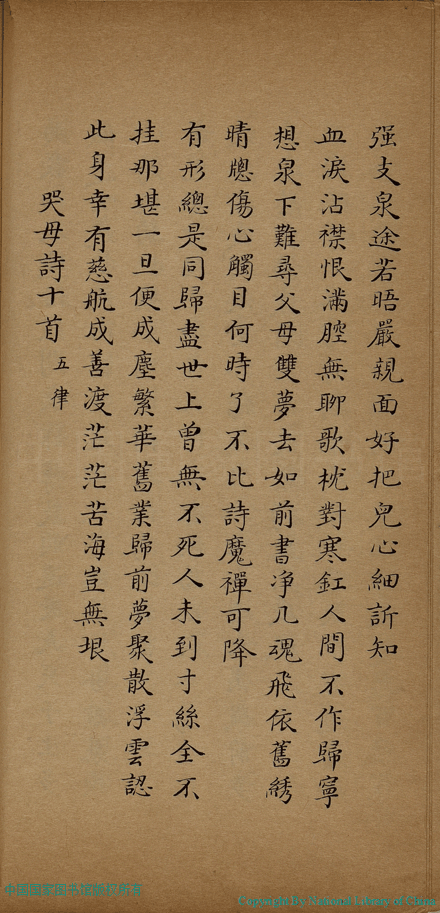 强支泉途若晤嚴親面好把兒心細訢知
血淚沾襟恨滿腔無聊歌枕對寒釭人間不作歸寧
想泉下難尋父母雙夢去如前書净几魂飛依舊綉
晴牕傷心觸目何時了不比詩魔禪可降
有形總是同歸盡世上曾無不死人未到寸絲全不
挂那堪一旦便成塵繁華舊業歸前夢聚散浮雲認
此身幸有慈航成善渡茫茫苦海豈無垠
哭母詩十首 五律
中国国家图书馆授权展示
Copyright By National Library of China